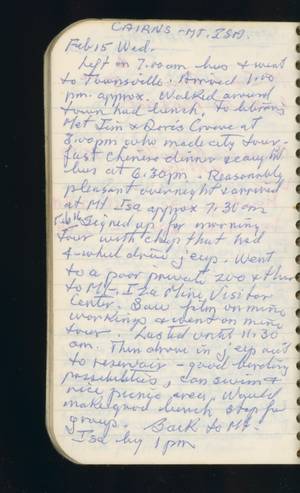 CAIRNS - MT. ISA.
Feb 15 Wed.
Left on 7.00am bus & went
to Townsville. Arrived 1.00
pm. approx. Walked around
town had lunch, to library
Met Jim & Doris Crowe at
3.00pm who made city tour -
fast Chinese dinner & caught
bus at 6.30pm. Reasonably
pleasant overnight & arrived
at Mt Isa approx 7.30am
Feb 16 Signed up for morning
tour with chap that had
4-wheel drive jeep. Went
to a poor private zoo & then
to Mt. Isa Mine Visitor
Center. Saw film on mine
workings & went on mine
tour. Lasted until 11.30
am. Then drove in jeep out
to reservoir - good birding
possibilities, can swim &
nice picnic area. Would
make good lunch stop for
group. Back to Mt.
Isa by 1pm